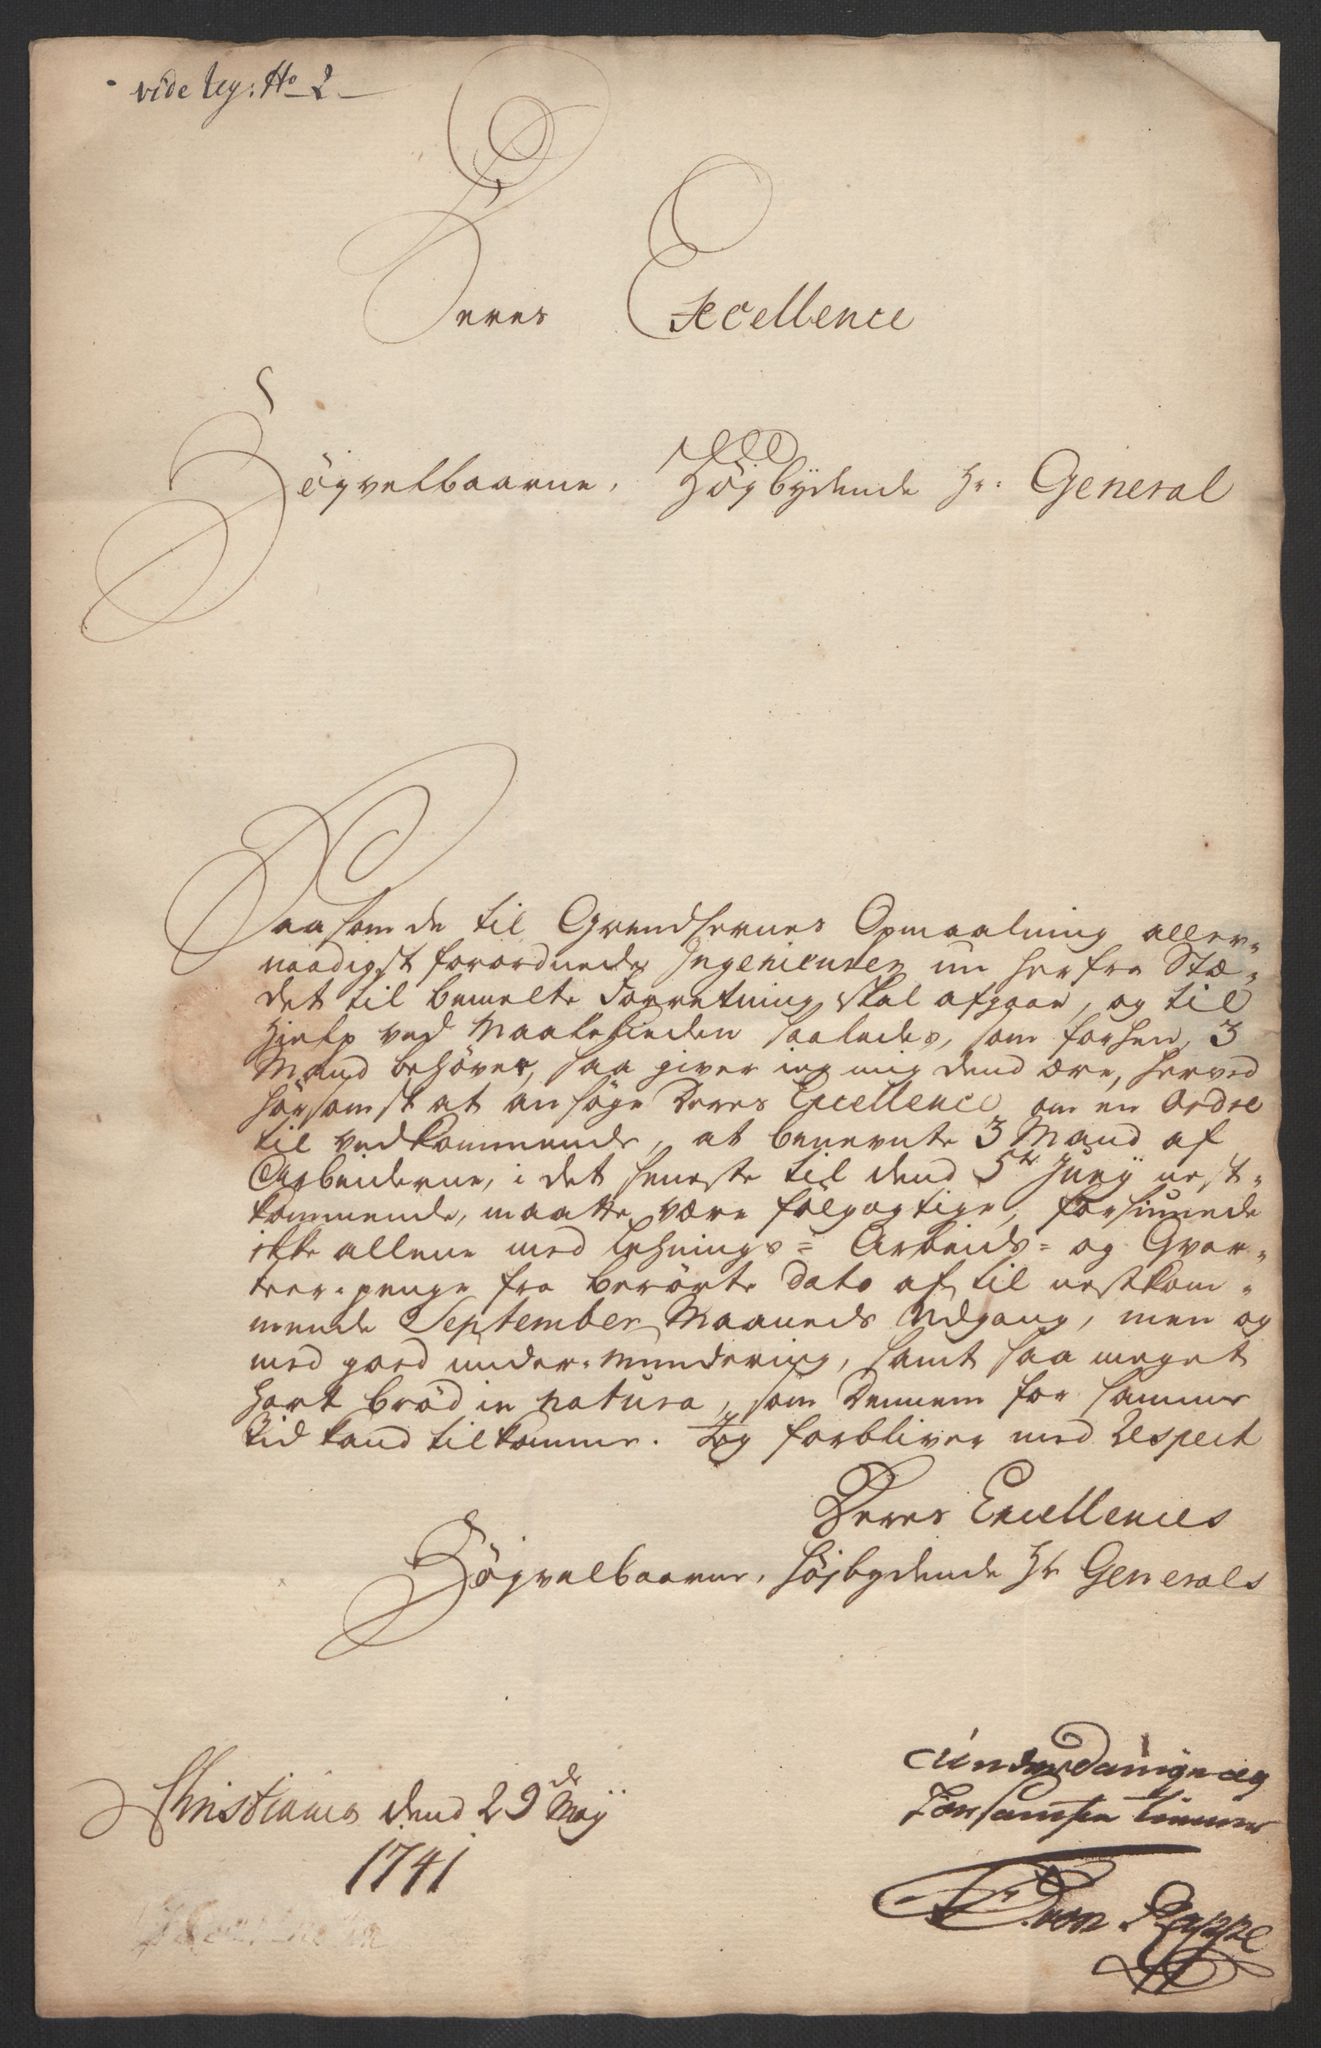 vide Reg: No 2
Deres Excellence
Høyvelbaarne, Høybydende Hr: General
Saasom de til Grendsernes Opmaalning aller-
naadigst forordnede Ingenieurer nu her fra Stæ-
det til bemelte Forretning skal afgaae, og til
Hielp ved Maalekieden saaledes, som forhen, 3
Mand behøves, saa giver ieg mig dend ære, herved
hørsomst at ansøge Deres Excellence om en Ordre
til vedkommende, at benevnte 3 Mand af
Arbeiderne, i det seneste til dend 5te Junij nest-
kommende, maatte være følgagtige, forsiunede
ikke allene med Lehnings= Arbeids= og Qvar-
teer-penge fra berørte dato af til nestkom-
mende September Maaneds Udgang, men og
med goed under-mundering, samt saa meget
hart brød in natura, som Dennem for samme
Tid kand tilkomme. Jeg forbliver med Respect
Deres Excellences
Høyvelbaarne, høybydende Hr Generals
Christiania dend 29de Maij
1741
underdanige og
tienner
von Rappe